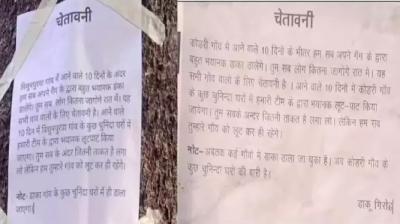 चेतावनी
विशुनपुरवा गांव में आने वाले 10 दिनो के अंदर
हम सब अपने गैंग के द्वारा बहुत भयानक डाका
डालेंगे। तुम सब लोग कितना जागोगे रात में। यह
सभी गांव वालों के लिए चेतावनी है। आने वाले
10 दिन में विशुनपुरवा गांव के कुछ चुनिंदा घरों में
हमारी टीम के द्वारा भयानक लूटपाट किया
जाएगा। तुम सब के अंदर जितनी ताकत है लगा
लो लेकिन हम राम तुम्हारे गांव को लूट कर ही रहेंगे।
नोट- डाका गांव के कुछ चुनिंदा घरो में ही डाला
जाएगा।
चेतावनी
कोहरी गाँव में आने वाले 10 दिनों के भीतर हम सब अपने गैंग के द्वारा
बहुत भयानक डाका डालेंगे। तुम सब लोग कितना जागोगे रात में। यह
सभी गाँव वालों के लिए चेतावनी है । आने वाले 10 दिनों में कोहरी गाँव
के कुछ चुनिंदा घरों में हमारी टीम के द्वारा भयानक लूट-पाट किया
जायेगा। तुम सबके अन्दर जितनी ताकत है लगा लो। लेकिन हम राम
तुम्हारे गाँव को लूट कर ही रहेंगे।
नोट- अबतक कई गांवो में डाका डाला जा चुका है। अब कोहरी गाँव के
कुछ चुनिन्दा घरों की बारी है।
डाकू गिरोह